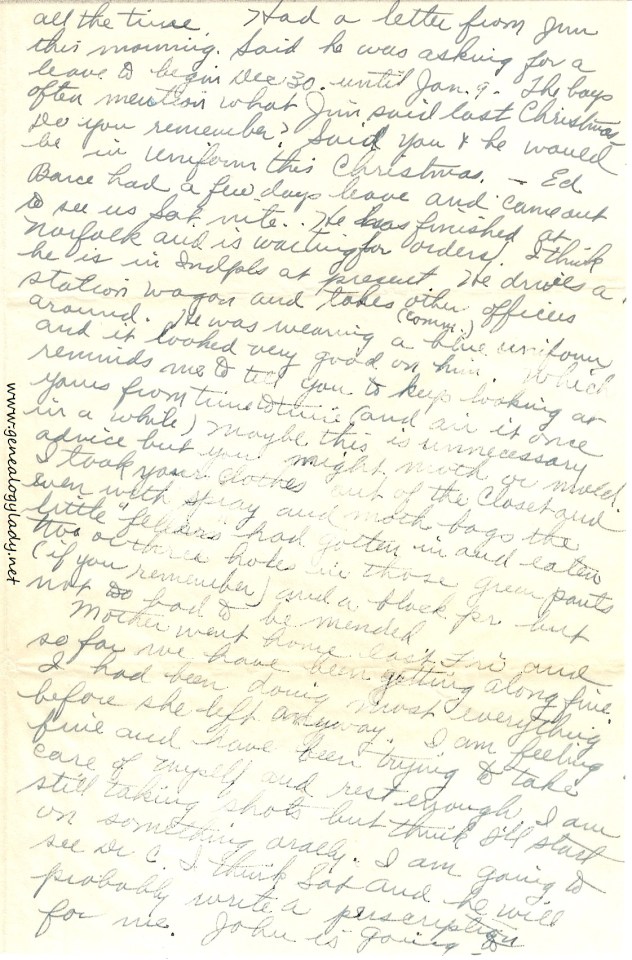 all the time. Had a letter from Jim
this morning. Said he was asking for a
leave to begin Dec 30. until Jan. 9. The boys
often mention what Jim said last Christmas
Do you remember? Said you & he would
be in uniform this Christmas. – Ed
Barce had a few days leave and came out
to see us Sat. nite. (He has finished at
Norfolk and is waiting for orders). I think
he is in Indpls at present. He drives a
station wagon and takes other officers
around. He was wearing a blue (comm.) uniform
and it looked very good on him. Which
reminds me to tell you to keep looking at
yours from time to time (and air it once
in a while) maybe this is unnecessary
advice but you might moth or mold.
I took your clothes out of the closet and
even with spray and moth bags the
little "fellers" had gotten in and eaten
two or three holes in those green pants
(if you remember) and a black pr. but
not too bad to be mended
Mother went home last Fri and
so far we have been getting along fine.
I had been doing most everything
before she left anyway. I am feeling
fine and have been trying to take
care of myself and rest enough. I am
still taking shots but think I'll start
on something orally. I am going to
see Dr C. I think Sat and he will
probably write a perscription
for me. John is going to
www.genealogylady.net